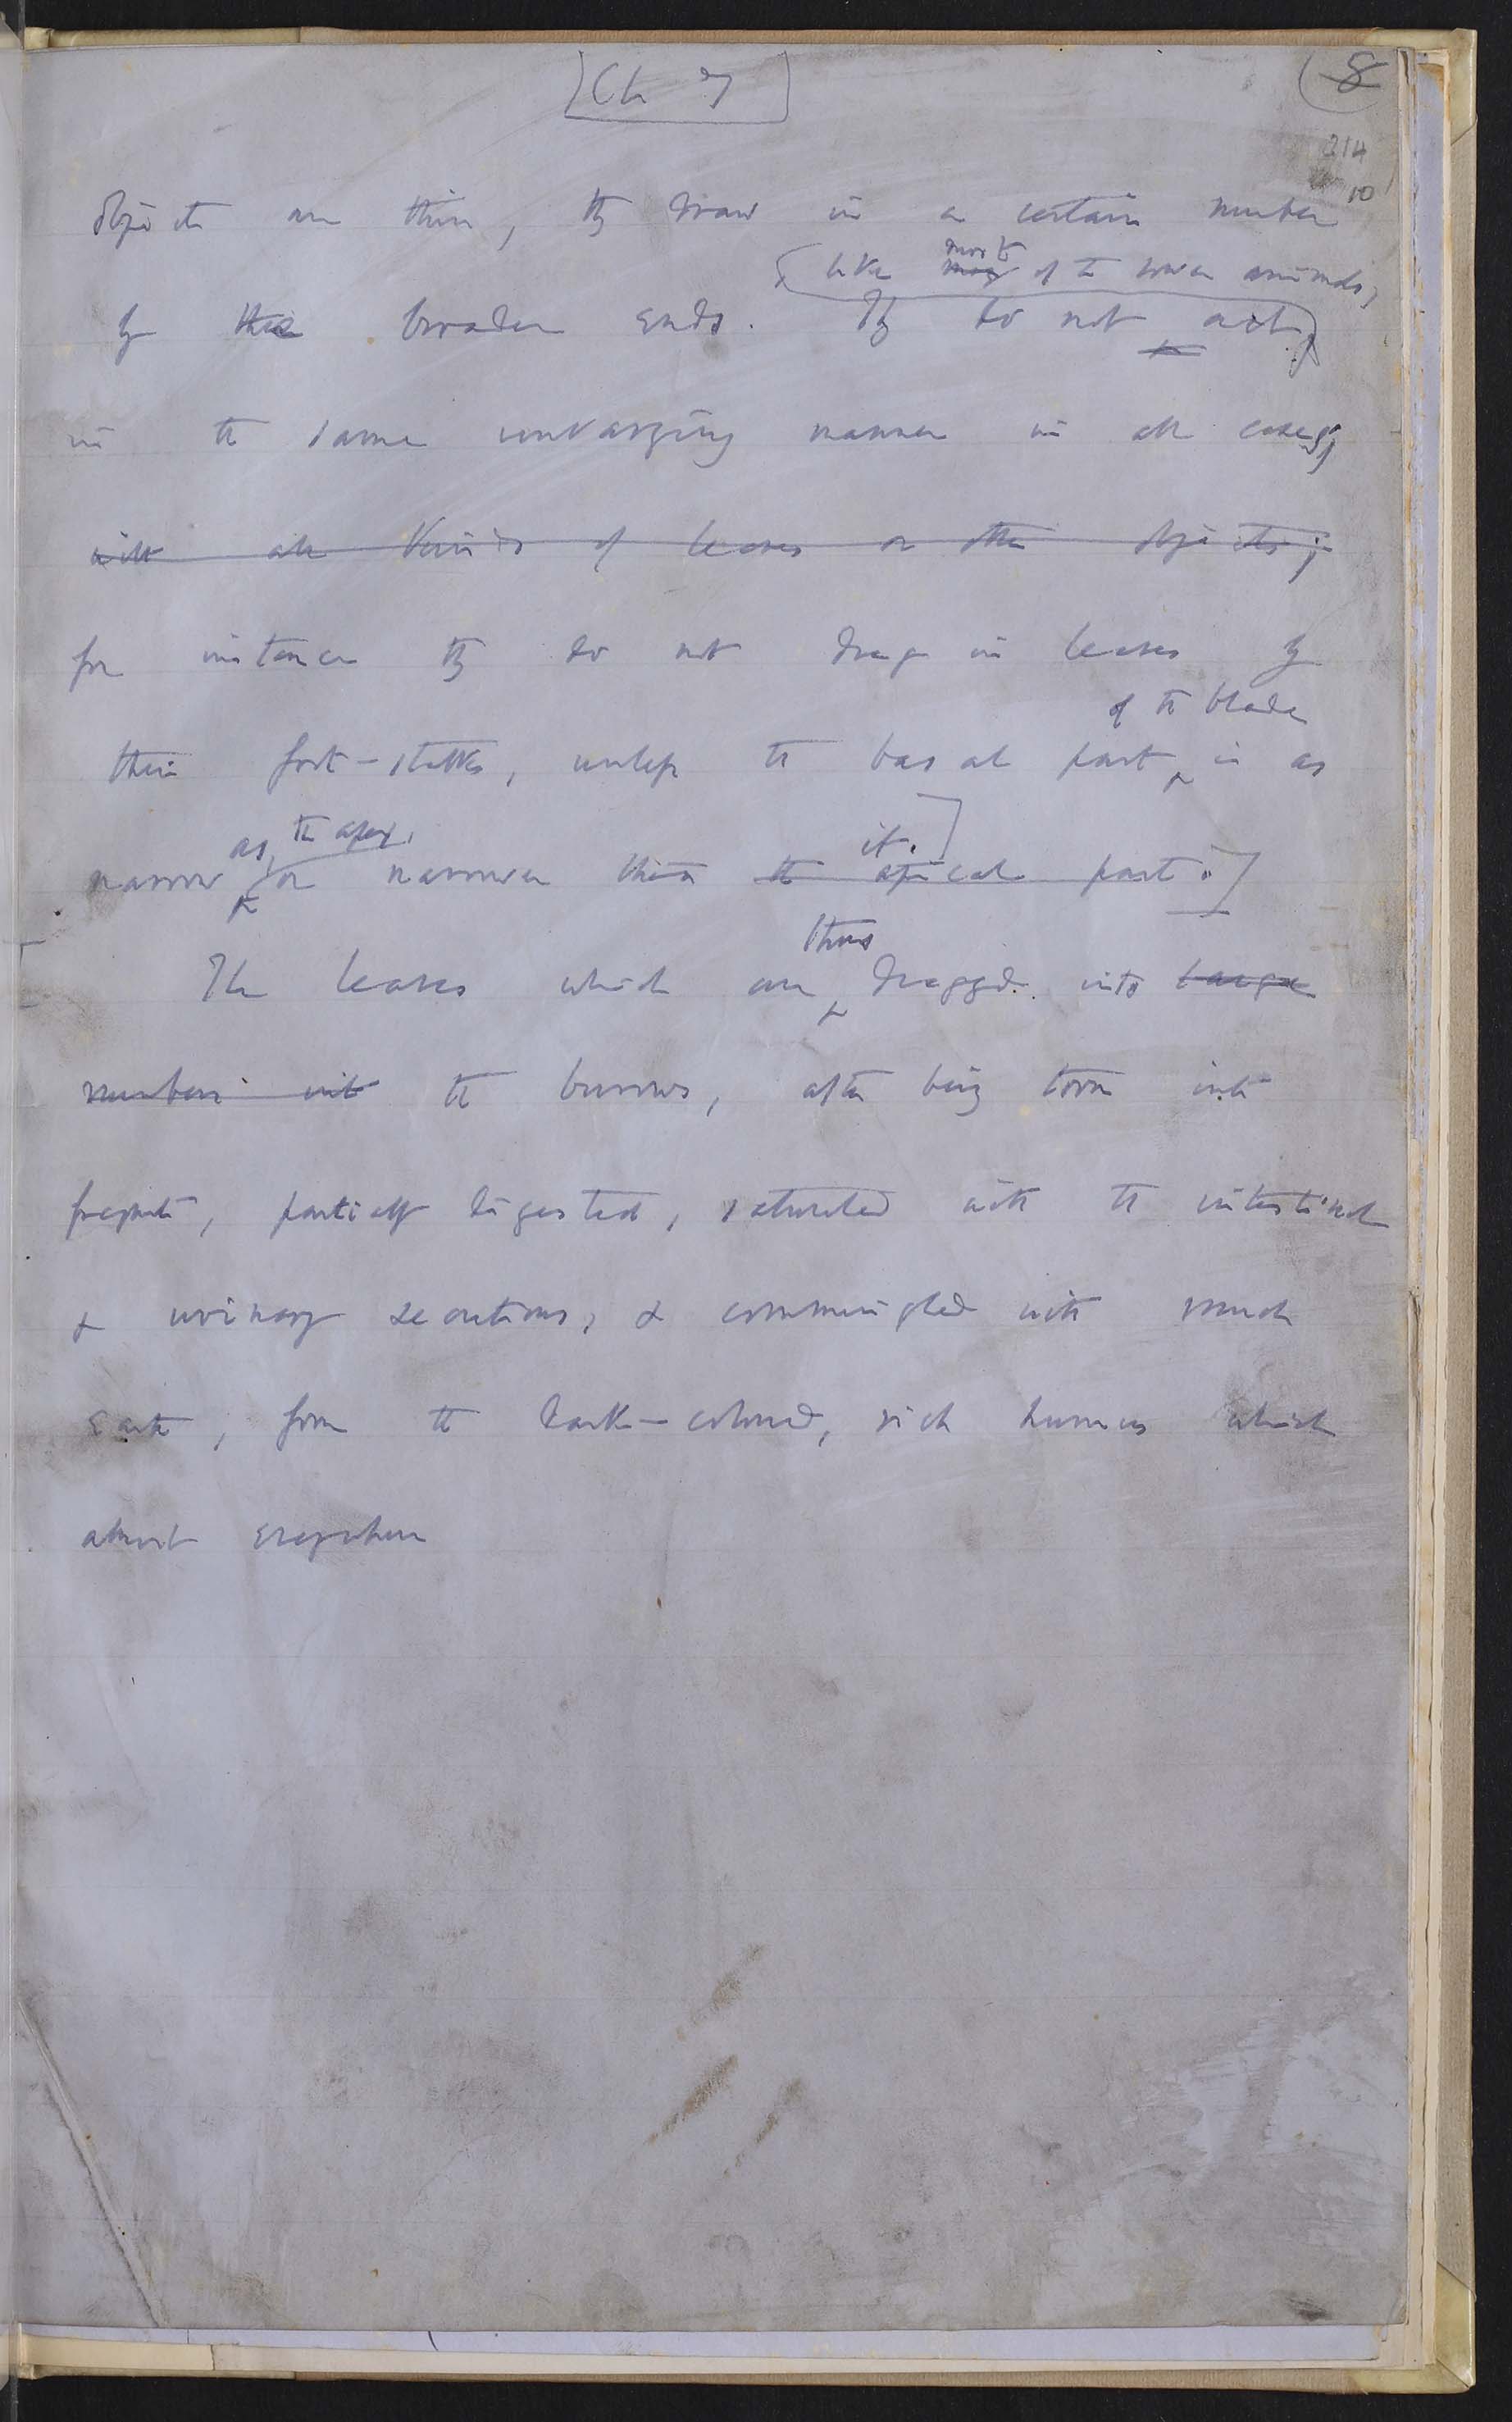 [Ch 7]
(8
214
10
objects are thin, they draw in a certain number
(like many most of the lower animals,)
by the broader ends. They do not act,
in the same unvarying manner in all cases;
with all kinds of leaves or other objects;
for instance they do not drag in leaves by
of the blade
their foot-stalks, unless the basal part is as
as the apex, it.]
narrow or narrower than the apical part.]
thus
The leaves which are dragged into large
numbers into the burrows, after being torn into
fragments, partially digested, saturated with the intestinal
& urinary secretions, & commingled with much
earth, form the dark-coloured, rich humus which
almost everywhere